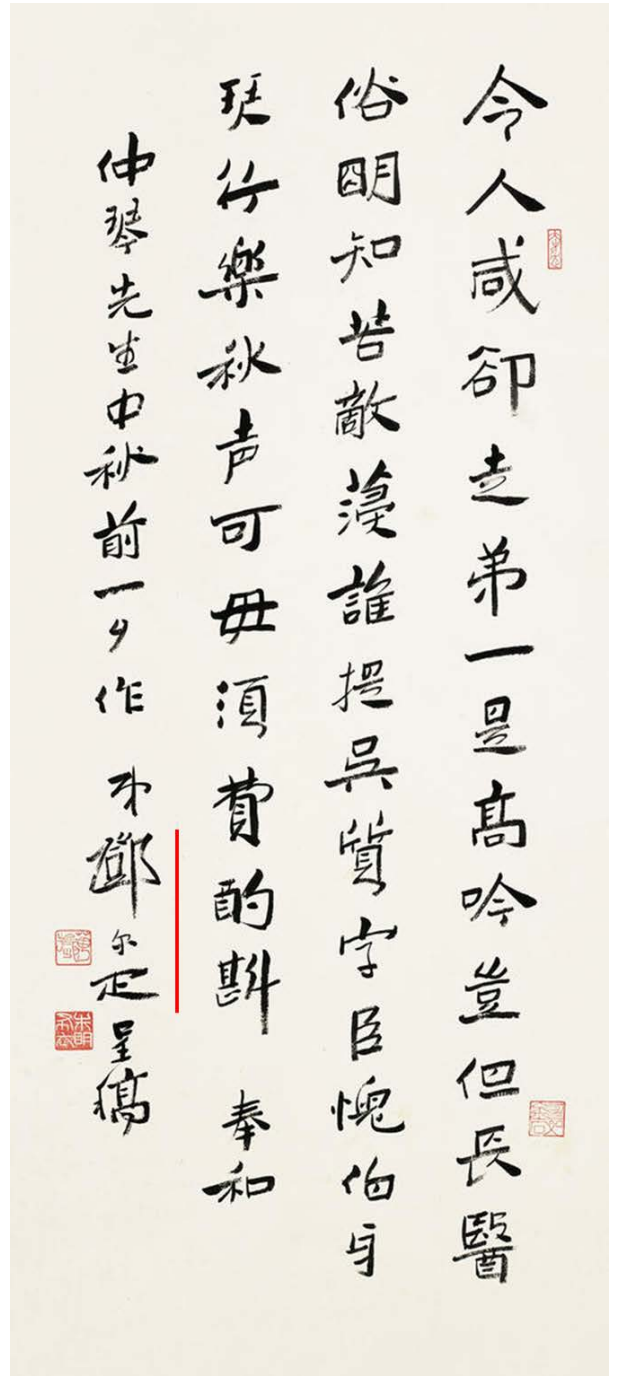 令人咸卻走弟一是高吟豈但長醫
俗明知苦敵蕩誰提吳質字臣愧伯牙
琴行樂秋声可毋須費酌斟 奉和
仲琴先生中秋前一夕作 弟鄧尔疋呈稿